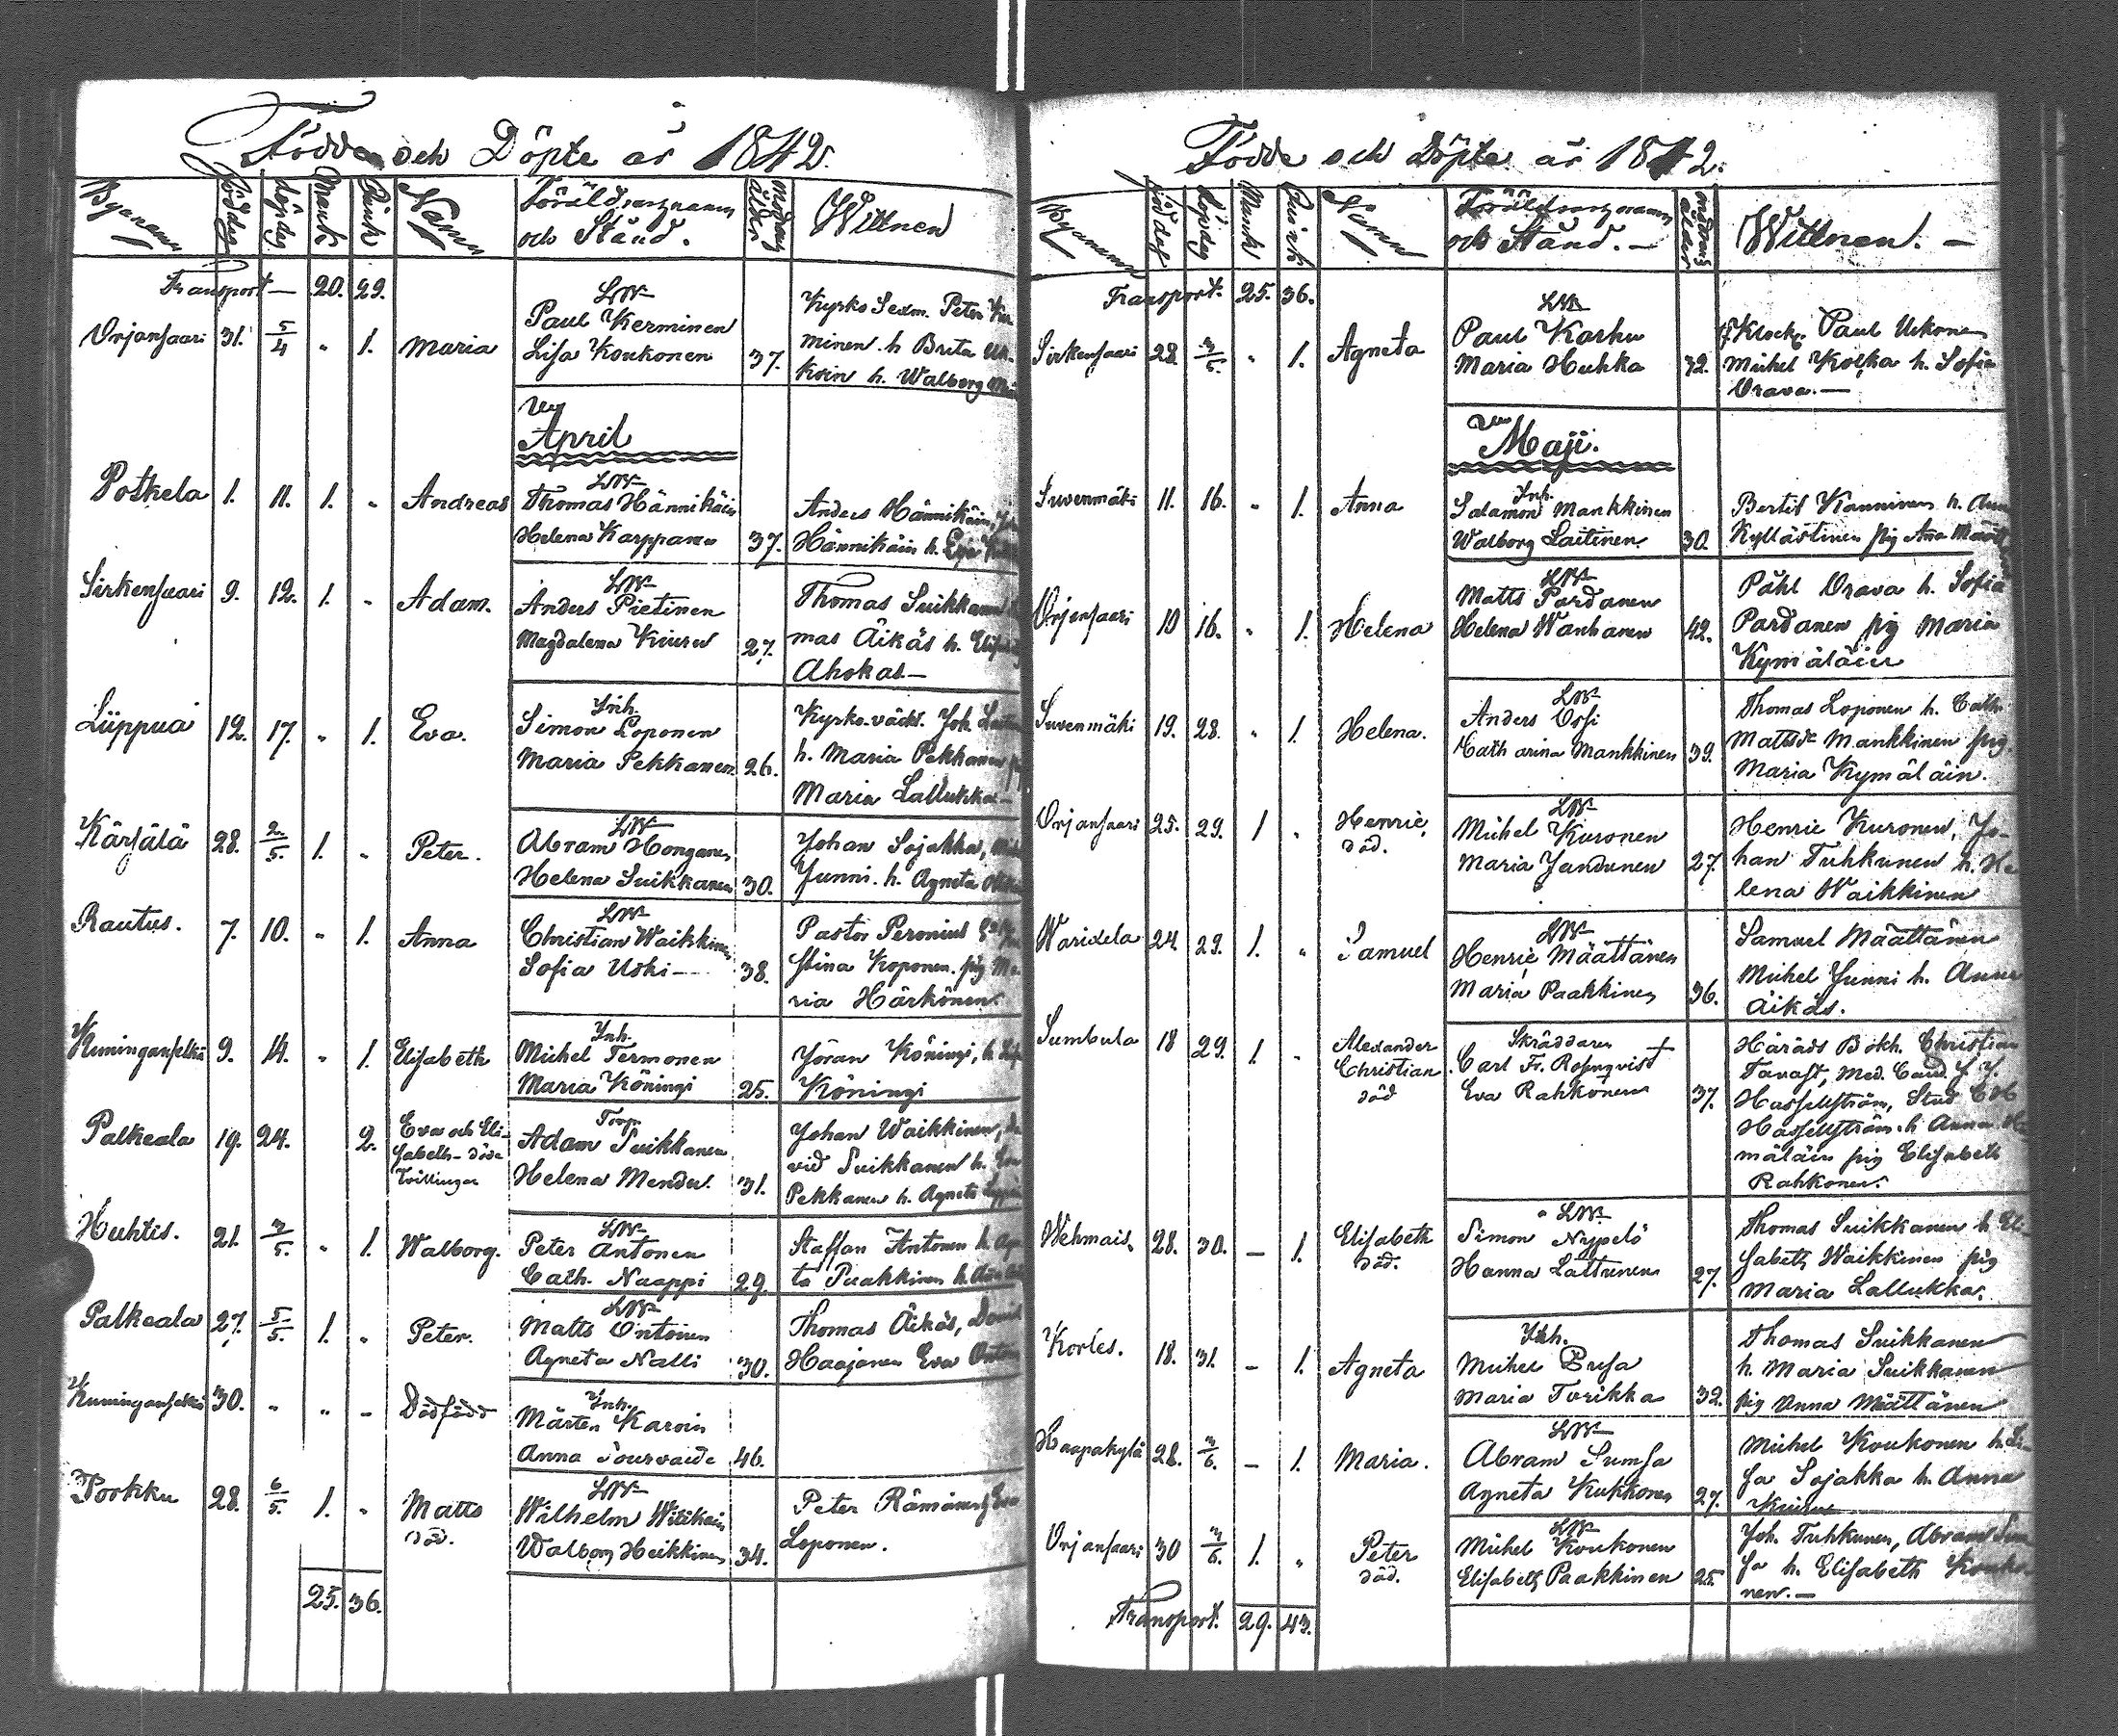 Födde och Döpte år 1842.
Byanamn Föd.dag döp.dag Mank Qvink Namn Föräldrarnas namn och Stånd. modrens ålder Wittnen
Transport — 20. 29.
LW
Orjansaari 31. 5/4 " 1. Maria Paul Kerminen
Lisa Koukonen 37.
Kyrko Sexm. Peter
minen h. Brita
h. Walborg
April
LW
Potkela 1. 11. 1. " Andreas Thomas Hännikäin
Helena Karppanen 37.
Anders Hännikäin,
Hännikäin h.
LW
Sirkensaari 9. 12. 1. " Adam. Anders Pietinen
Magdalena Kiuru 27.
Thomas Suikkanen
mas Äikäs h.
Ahokas —
Inh.
Liippua 12. 17. " 1. Eva. Simon Loponen
Maria Pekkanen 26.
Kyrko.vächt. Joh.
h. Maria Pekkanen
Maria Lallukka —
LW
Kärsälä 28. 2/5. 1. " Peter. Abram Honganen
Helena Suikkanen 30.
Johan Sojakka,
Junni. h. Agneta
LW
Rautus. 7. 10. " 1. Anna Christian Waikkinen
Sofia Uski — 38.
Pastor Peronius
Stina Koponen. pig Ma-
ria Härkönen.
Inh.
Kuninganselkä 9. 14. " 1. Elisabeth Michel Termonen
Maria Köningi 25.
Jöran Köningi, h.
Köningi
Torp.
Palkeala 19. 24. 2. Eva och Eli-
sabeth - döda
Tvillingar
Adam Suikkanen
Helena Mendu. 31.
Johan Waikkinen, Da
vid Suikkanen h.
Pekkanen h. Agneta
LW
Huhtis. 21. 3/5. " 1. Walborg. Peter Antonen
Cath. Naappi 29.
Staffan Antonen h. Agne
ta Paakkinen h.
LW
Palkeala 27. 5/5. 1. " Peter. Matts Ontoinen
Agneta Nalli 30.
Thomas Äikäs, David
Haajanen Eva
Inh.
Kuninganselkä 30. " " – Dödfödd Mårten Karvin
Anna 46.
LW
Porkku 28. 6/5. 1. " Matts
död.
Wilhelm
Walborg Heikkinen 34.
Peter Rämänen
Loponen.
25. 36.
Födde och Döpte år 1842.
Byanamn föd.dag döp.dag Mank Qvink Namn Föräldrarnas namn och Stånd. — modrens ålder Wittnen. —
Transport. 25. 36.
LW
Sirkensaari 28. 3/5. " 1. Agneta Paul Karhu
Maria Huhka 32.
Klock. Paul Uskonen
Michel Kolka h. Sofia
Orava. —
Maji.
Inh.
Suvenmäki 11. 16. " 1. Anna Salamon Mankkinen
Walborg Laitinen. 30.
Bertil Kanninen h. Anna
Kyllästinen pig Ana
LW
Orjansaari 10 16. " 1. Helena Matts Pardanen
Helena Wanhanen 42.
Påhl Orava h. Sofia
Pardanen pig Maria
Kymäläin
LW
Suvenmäki 19. 28. " 1. Helena. Anders Ossi
Catharina Mankkinen 39.
Thomas Loponen h. Cath.
Mattsdr Mankkinen pig.
Maria Kymäläin.
LW
Orjansaari 25. 29. 1 " Henric,
död.
Michel Kuronen
Maria Jandunen 27.
Henric Kuronen, Jo-
han Tuhkunen h. He
lena Waikkinen
LW
Waridela 24. 29. 1. " Samuel Henric Määttänen
Maria Paakkinen 36.
Samuel Määttänen
Michel Junni h. Anna
Äikäs.
Skräddaren
Sumbula 18 29. 1. " Alexander
Christian
död
Carl Fr. Rosnqvist
Eva Rahkonen 37.
Härads Bokh. Christian
Tavast, Med. Cand. f. J.
Hasselström, Stud C H
Hasselström. h Anna
mäläin pig Elisabeth
Rahkonen.
LW
Wehmais. 28. 30. – 1. Elisabeth
död.
Simon Nypelö
Hanna Lattunen 27.
Thomas Suikkanen h. Eli-
sabeth Waikkinen pig
Maria Lallukka.
Inh.
Kortes. 18. 31. – 1. Agneta Michel Pusa
Maria Torikka 32.
Thomas Suikkanen
h. Maria Suikkanen
pig Anna Määttänen
LW
Haapakylä 28. 3/6. – 1. Maria. Abram Sumsa
Agneta Kukkonen 27.
Michel Koukonen h. Li-
sa Sojakka h. Anna
Kiuru
LW
Orjansaari 30 3/6. 1. " Peter
död.
Michel Koukonen
Elisabeth Paakkinen 25.
Joh. Tuhkunen, Abram Sum
sa h. Elisabeth Kouko-
nen. —
Transport. 29. 43.